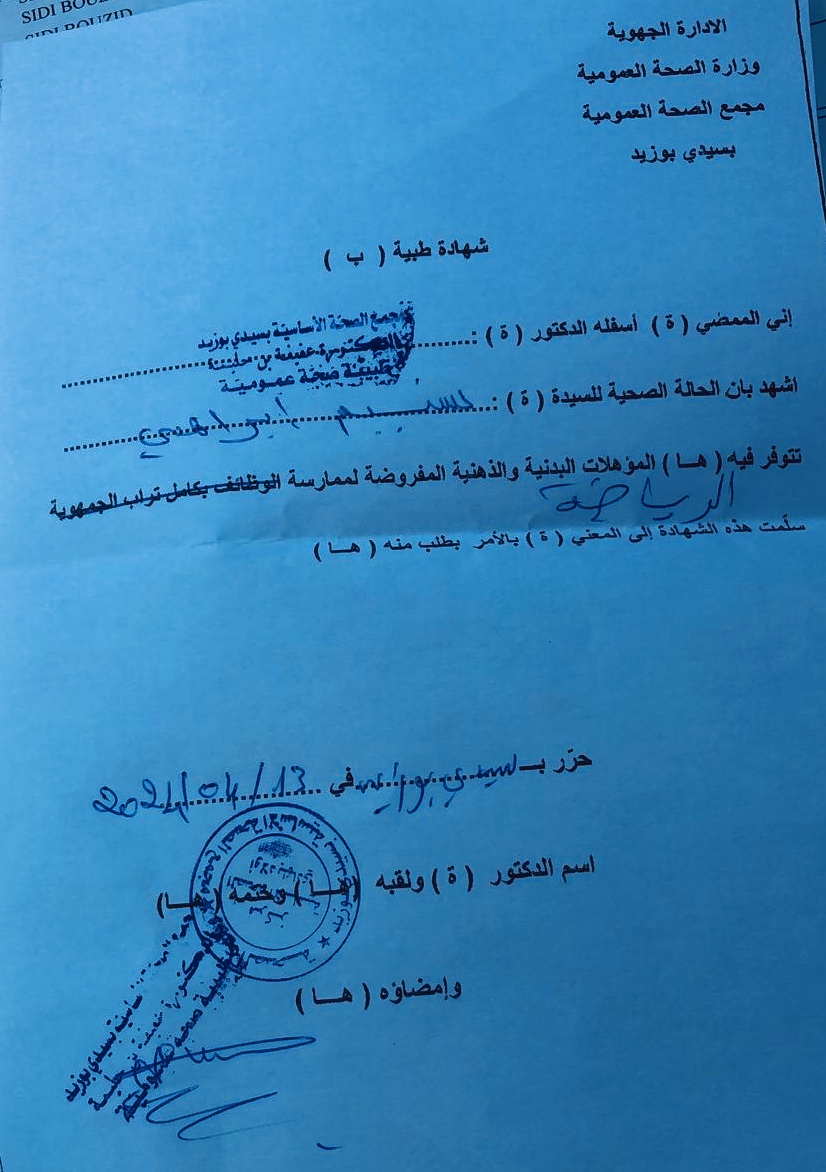 SIDI BOUZID
SIDI BOUZID
الادارة الجهوية
وزارة الصحة العمومية
مجمع الصحة العمومية
بسيدي بوزيد
شهادة طبية ( ب )
مجمع الصحة الأساسية بسيدي بوزيد
إني الممضي ( ة ) أسفله الدكتور ( ة ) :
الدكتورة عفيفة بن
طبيبة صحة عمومية
اشهد بان الحالة الصحية للسيدة ( ة ) :
تتوفر فيه ( هـا ) المؤهلات البدنية والذهنية المفروضة لممارسة الوظائف بكامل تراب الجمهورية
الرياضة
سلّمت هذه الشهادة إلى المعني ( ة ) بالأمر بطلب منه ( هـا )
حرّر بـ سيدي بوزيد في 2021/04/13
اسم الدكتور ( ة ) ولقبه ( هـا ) وختمه ( هـا )
وإمضاؤه ( هـا )
بسيدي بوزيد
طبيبة صحة عمومية